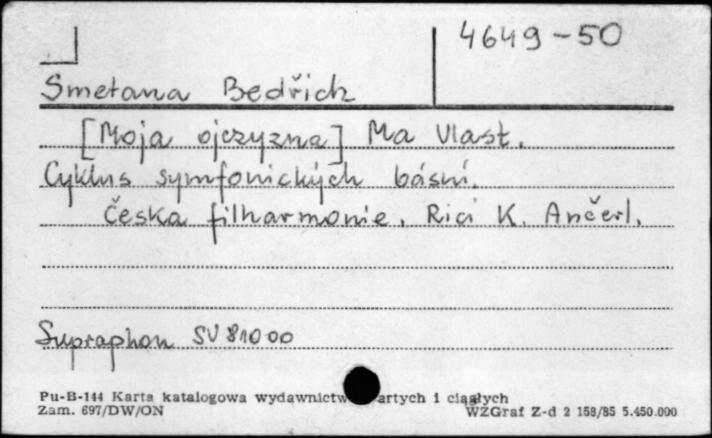 4649-50
Smetana Bedřich
[Moja ojczyzna] Ma Vlast.
Cyklus symfonických básní.
Česka filharmonie. Rici K. Ančerl.
Supraphon SV 81000
Pu-B-144 Karta katalogowa wydawnictw artych i ciągłych
Zam. 697/DW/ON WZGraf Z-d 2 158/85 5.450.000